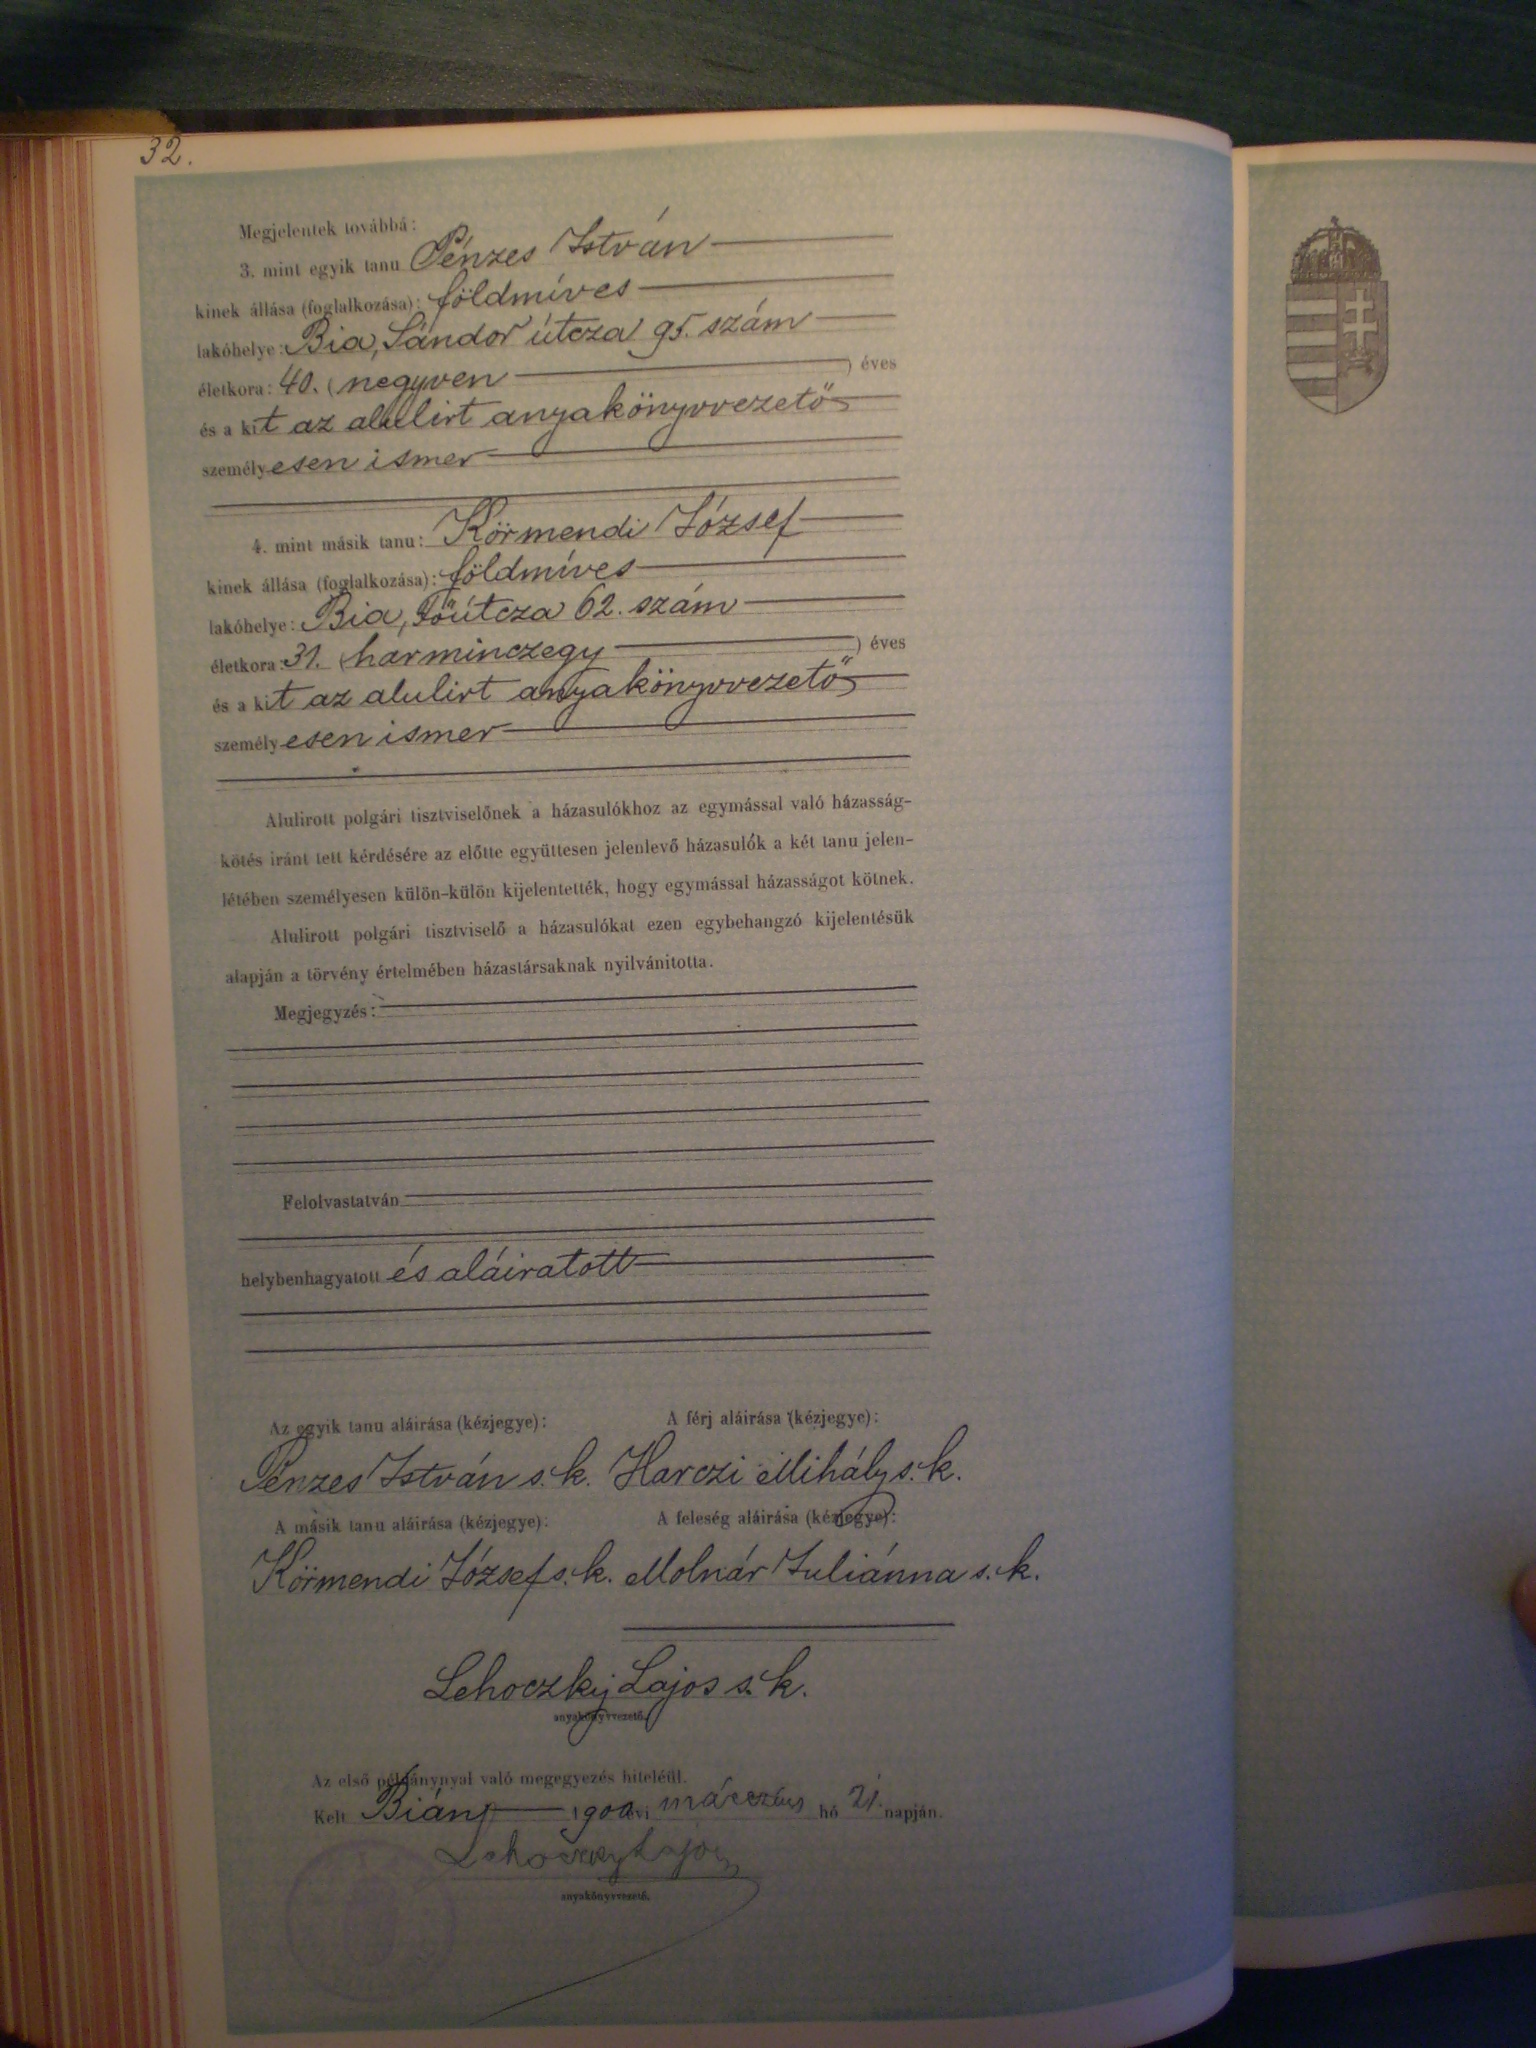 32.
Megjelentek továbbá:
3. mint egyik tanu Pénzes István
kinek állása (foglalkozása): földmíves
lakóhelye: Bia, Sándor útcza 95. szám
életkora: 40. (negyven) éves
és a kit az alulirt anyakönyvvezető
személyesen ismer
4. mint másik tanu: Körmendi József
kinek állása (foglalkozása): földmíves
lakóhelye: Bia, Főútcza 62. szám
életkora: 31. (harminczegy) éves
és a kit az alulirt anyakönyvvezető
személyesen ismer
Alulirott polgári tisztviselőnek a házasulókhoz az egymással való házasság-
kötés iránt tett kérdésére az előtte együttesen jelenlevő házasulók a két tanu jelen-
létében személyesen külön-külön kijelentették, hogy egymással házasságot kötnek.
Alulirott polgári tisztviselő a házasulókat ezen egybehangzó kijelentésük
alapján a törvény értelmében házastársaknak nyilvánitotta.
Megjegyzés:
Felolvastatván
helybenhagyatott és aláiratott
Az egyik tanu aláirása (kézjegye): A férj aláirása (kézjegye):
Pénzes István s. k. Harczi Mihály s. k.
A másik tanu aláirása (kézjegye): A feleség aláirása (kézjegye):
Körmendi József s. k. Molnár Juliánna s. k.
Lehoczky Lajos s. k.
anyakönyvvezető.
Az első példánynyal való megegyezés hiteléül.
Kelt Bián, 1900 évi márczius hó 21. napján.
Lehoczky Lajos
anyakönyvvezető.